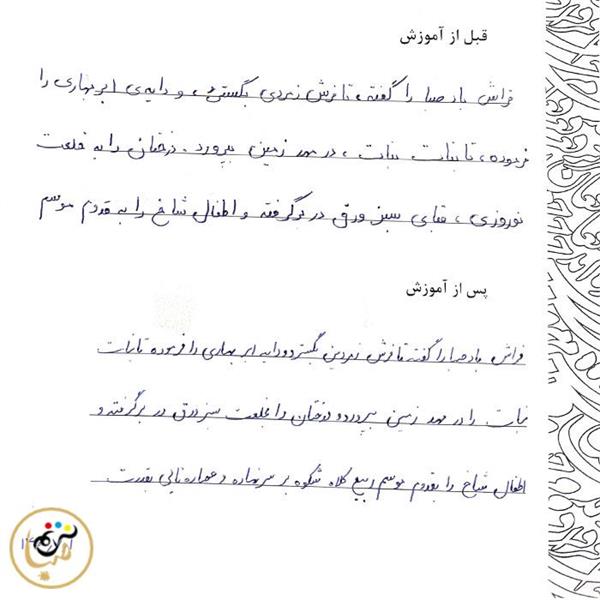 قبل از آموزش
فراش باد صبا را گفته، تا فرش زمردی بگسترد، و دایه‌ی ابر بهاری را
فرموده، تا بنات نبات، در مهد زمین بپرورد. درختان را به خلعت
نوروزی، قبای سبز ورق در برگرفته و اطفال شاخ را به قدوم موسم
پس از آموزش
فراش باد صبا را گفته تا فرش زمردین بگسترد و دایه ابر بهاری را فرموده تا بنات
نبات را در مهد زمین بپرورد و درختان را بخلعت سبز ورق در برگرفته و
اطفال شاخ را بقدوم موسم ربیع کلاه شکوه بر سر نهاده و عصاره نالی بقدرت